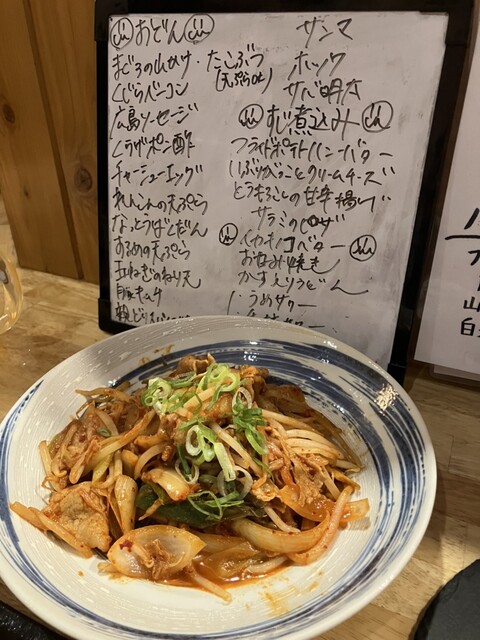 おでん
まぐろの山かけ・たこぶつ
(天ぷらOK)
くじらベーコン
広島ソーセージ
くらげポン酢
チャーシューエッグ
れんこんの天ぷら
なっとうばくだん
するめの天ぷら
玉ねぎの
豚キムチ
サンマ
ホッケ
サバ明太
すじ煮込み
フライドポテトハニーバター
いぶりがっことクリームチーズ
とうもろこしの甘辛揚げ
サラミのピザ
イカキノコバター
お好み焼き
かすうどん
うめサワー
山
白